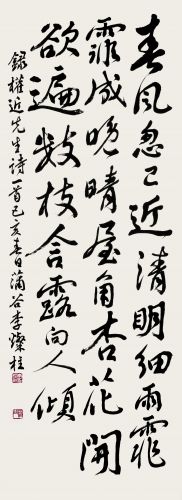 春風忽已近清明細雨霏
霏成晚晴屋角杏花開
欲遍數枝含露向人傾
錄權近先生詩一首己亥春日蒲谷李燦柱